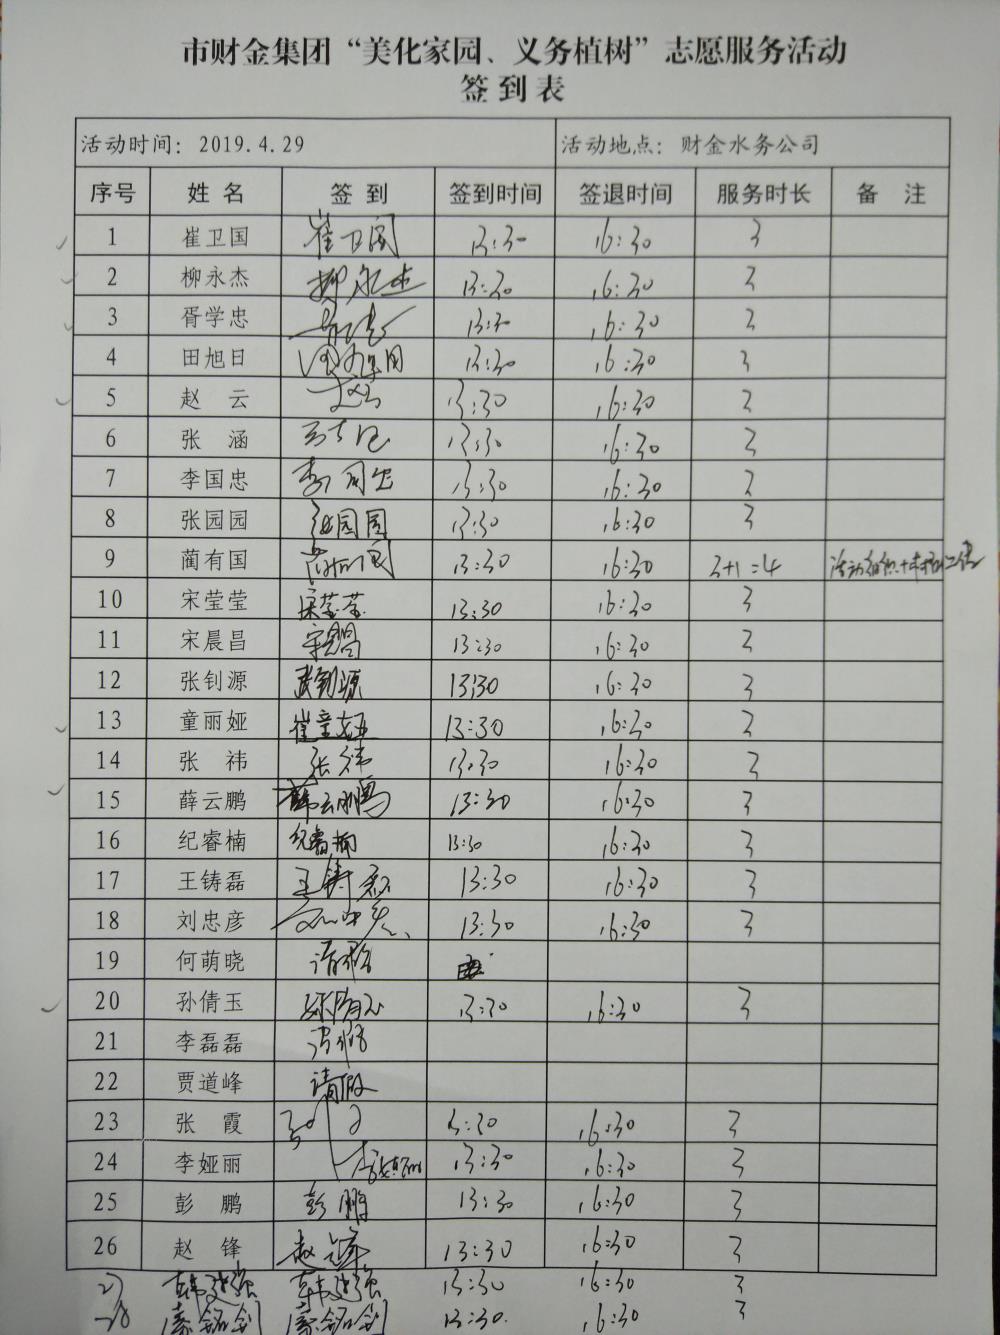 市财金集团“美化家园、义务植树”志愿服务活动
签到表
活动时间：2019.4.29 活动地点：财金水务公司
序号 姓名 签到 签到时间 签退时间 服务时长 备注
1 崔卫国 崔卫国 13:30 16:30 3
2 柳永杰 柳永杰 13:30 16:30 3
3 胥学忠 13:30 16:30 3
4 田旭日 13:30 16:30 3
5 赵云 赵云 13:30 16:30 3
6 张涵 13:30 16:30 3
7 李国忠 李国忠 13:30 16:30 3
8 张园园 张园园 13:30 16:30 3
9 蔺有国 蔺有国 13:30 16:30 3+1=4 活动组织
10 宋莹莹 宋莹莹 13:30 16:30 3
11 宋晨昌 宋晨昌 13:30 16:30 3
12 张钊源 张钊源 13:30 16:30 3
13 童丽娅 13:30 16:30 3
14 张祎 张祎 13:30 16:30 3
15 薛云鹏 薛云鹏 13:30 16:30 3
16 纪睿楠 纪睿楠 13:30 16:30 3
17 王铸磊 王铸磊 13:30 16:30 3
18 刘忠彦 刘忠彦 13:30 16:30 3
19 何萌晓 请假
20 孙倩玉 孙倩玉 13:30 16:30 3
21 李磊磊 请假
22 贾道峰 请假
23 张霞 13:30 16:30 3
24 李娅丽 13:30 16:30 3
25 彭鹏 彭鹏 13:30 16:30 3
26 赵锋 赵锋 13:30 16:30 3
27 韩建强 韩建强 13:30 16:30 3
28 秦铭剑 秦铭剑 13:30. 16:30 3